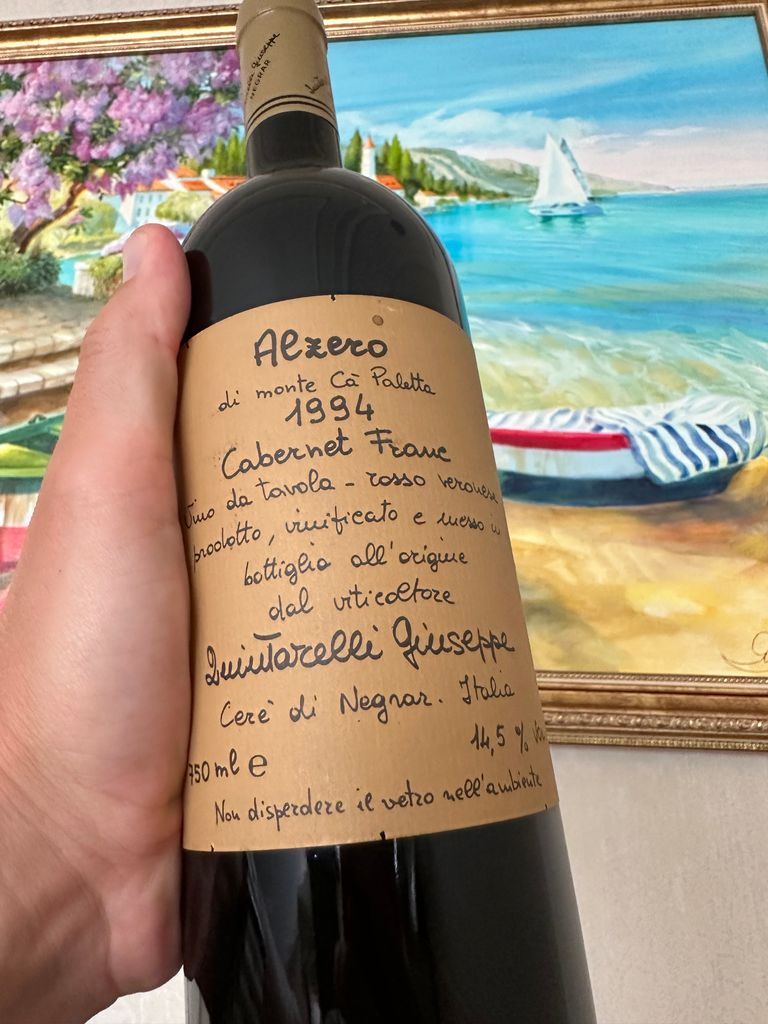 Giuseppe
NEGRAR
Alzero
di monte Cà Paletta
1994
Cabernet Franc
Vino da tavola - rosso veronese
prodotto, vinificato e messo in
bottiglia all'origine
dal viticoltore
Quintarelli Giuseppe
Cerè di Negrar. Italia
750 ml e
14,5 % Vol
Non disperdere il vetro nell'ambiente